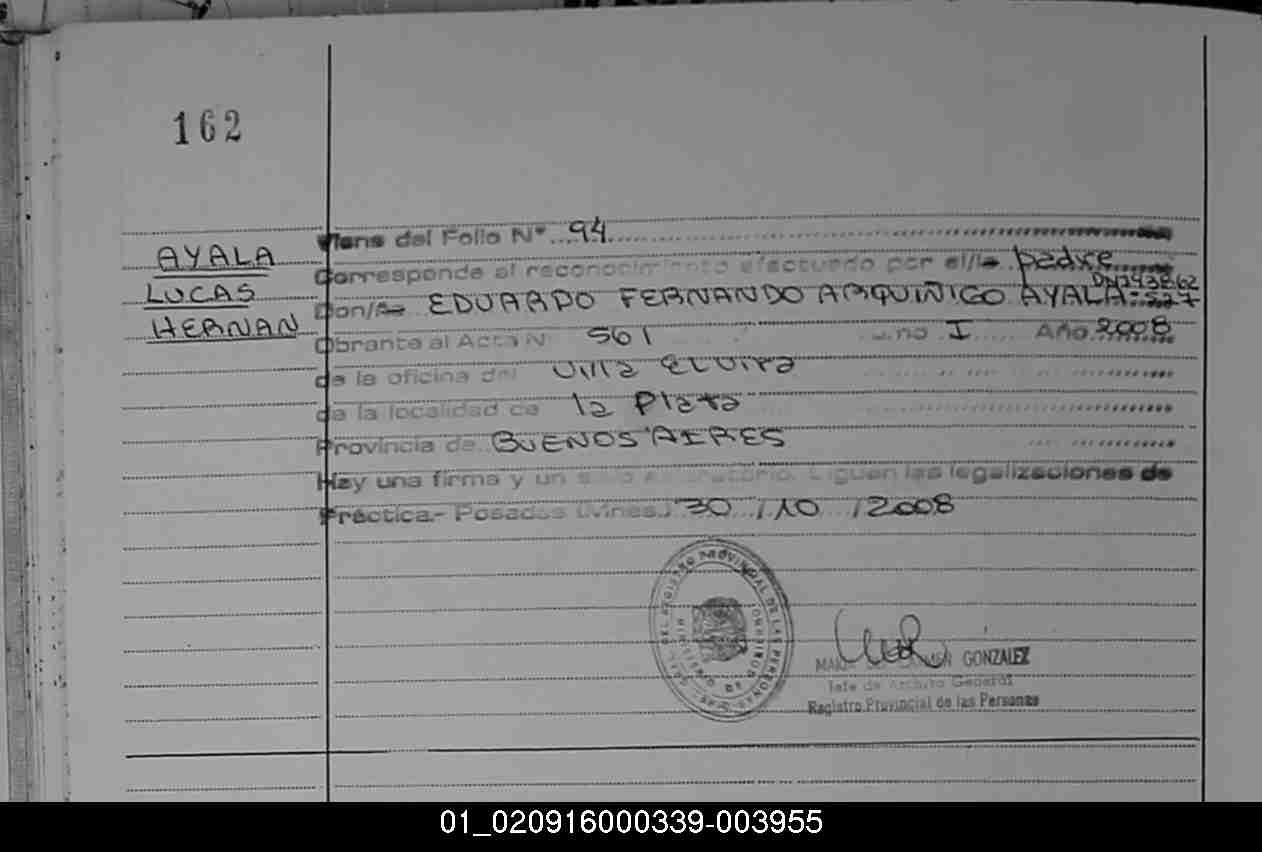 162
AYALA
LUCAS
HERNAN
Viene del Folio Nº 94
Corresponde al reconocimiento efectuado por el/la padre
Don/ña EDUARDO FERNANDO ARQUIÑIGO AYALA
Obrante al Acta Nº 561 I Año 2008
de la oficina del Villa Elvira
de la localidad de la Plata
Provincia de BUENOS AIRES
Hay una firma y un sello aclaratorio. Siguen las legalizaciones de
Práctica.- Posadas (Mnes.) 30 / 10 / 2008
REGISTRO PROVINCIAL DE LAS PERSONAS
GONZALEZ
Jefe de Archivo General
Registro Provincial de las Personas
01_020916000339-003955